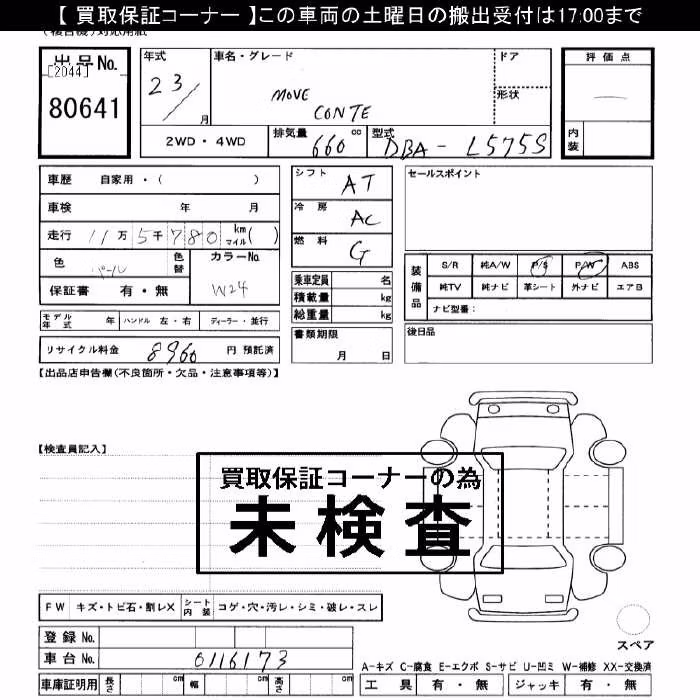 【 買取保証コーナー 】この車両の土曜日の搬出受付は17:00まで
出品No.
[2044]
80641
年式
23/
月
車名・グレード
MOVE
CONTE
ドア
形状
評価点
内装
2WD・4WD
排気量 660 cc
型式 DBA- L575S
車歴 自家用・( )
車検 年 月
走行 11万5千780 km マイル( )
色 パール
色替
カラーNo. W24
保証書 有・無
シフト AT
冷房 AC
燃料 G
乗車定員 名
積載量 kg
総重量 kg
セールスポイント
装備品
S/R 純A/W P/S P/W ABS
純TV 純ナビ 革シート 外ナビ エアB
ナビ型番:
モデル年式 年 ハンドル 左・右 ディーラー・並行
書類期限
月 日
後日品
リサイクル料金 8960 円 預託済
【出品店申告欄(不良箇所・欠品・注意事項等)】
【検査員記入】
買取保証コーナーの為
未検査
FW キズ・トビ石・割レX シート内装 コゲ・穴・汚レ・シミ・破レ・スレ
登録No.
車台No. 0116173
スペア
A-キズ C-腐食 E-エクボ S-サビ U-凹ミ W-補修 XX-交換済
車庫証明用 長さ cm 幅 cm 高さ cm
工具 有・無 ジャッキ 有・無